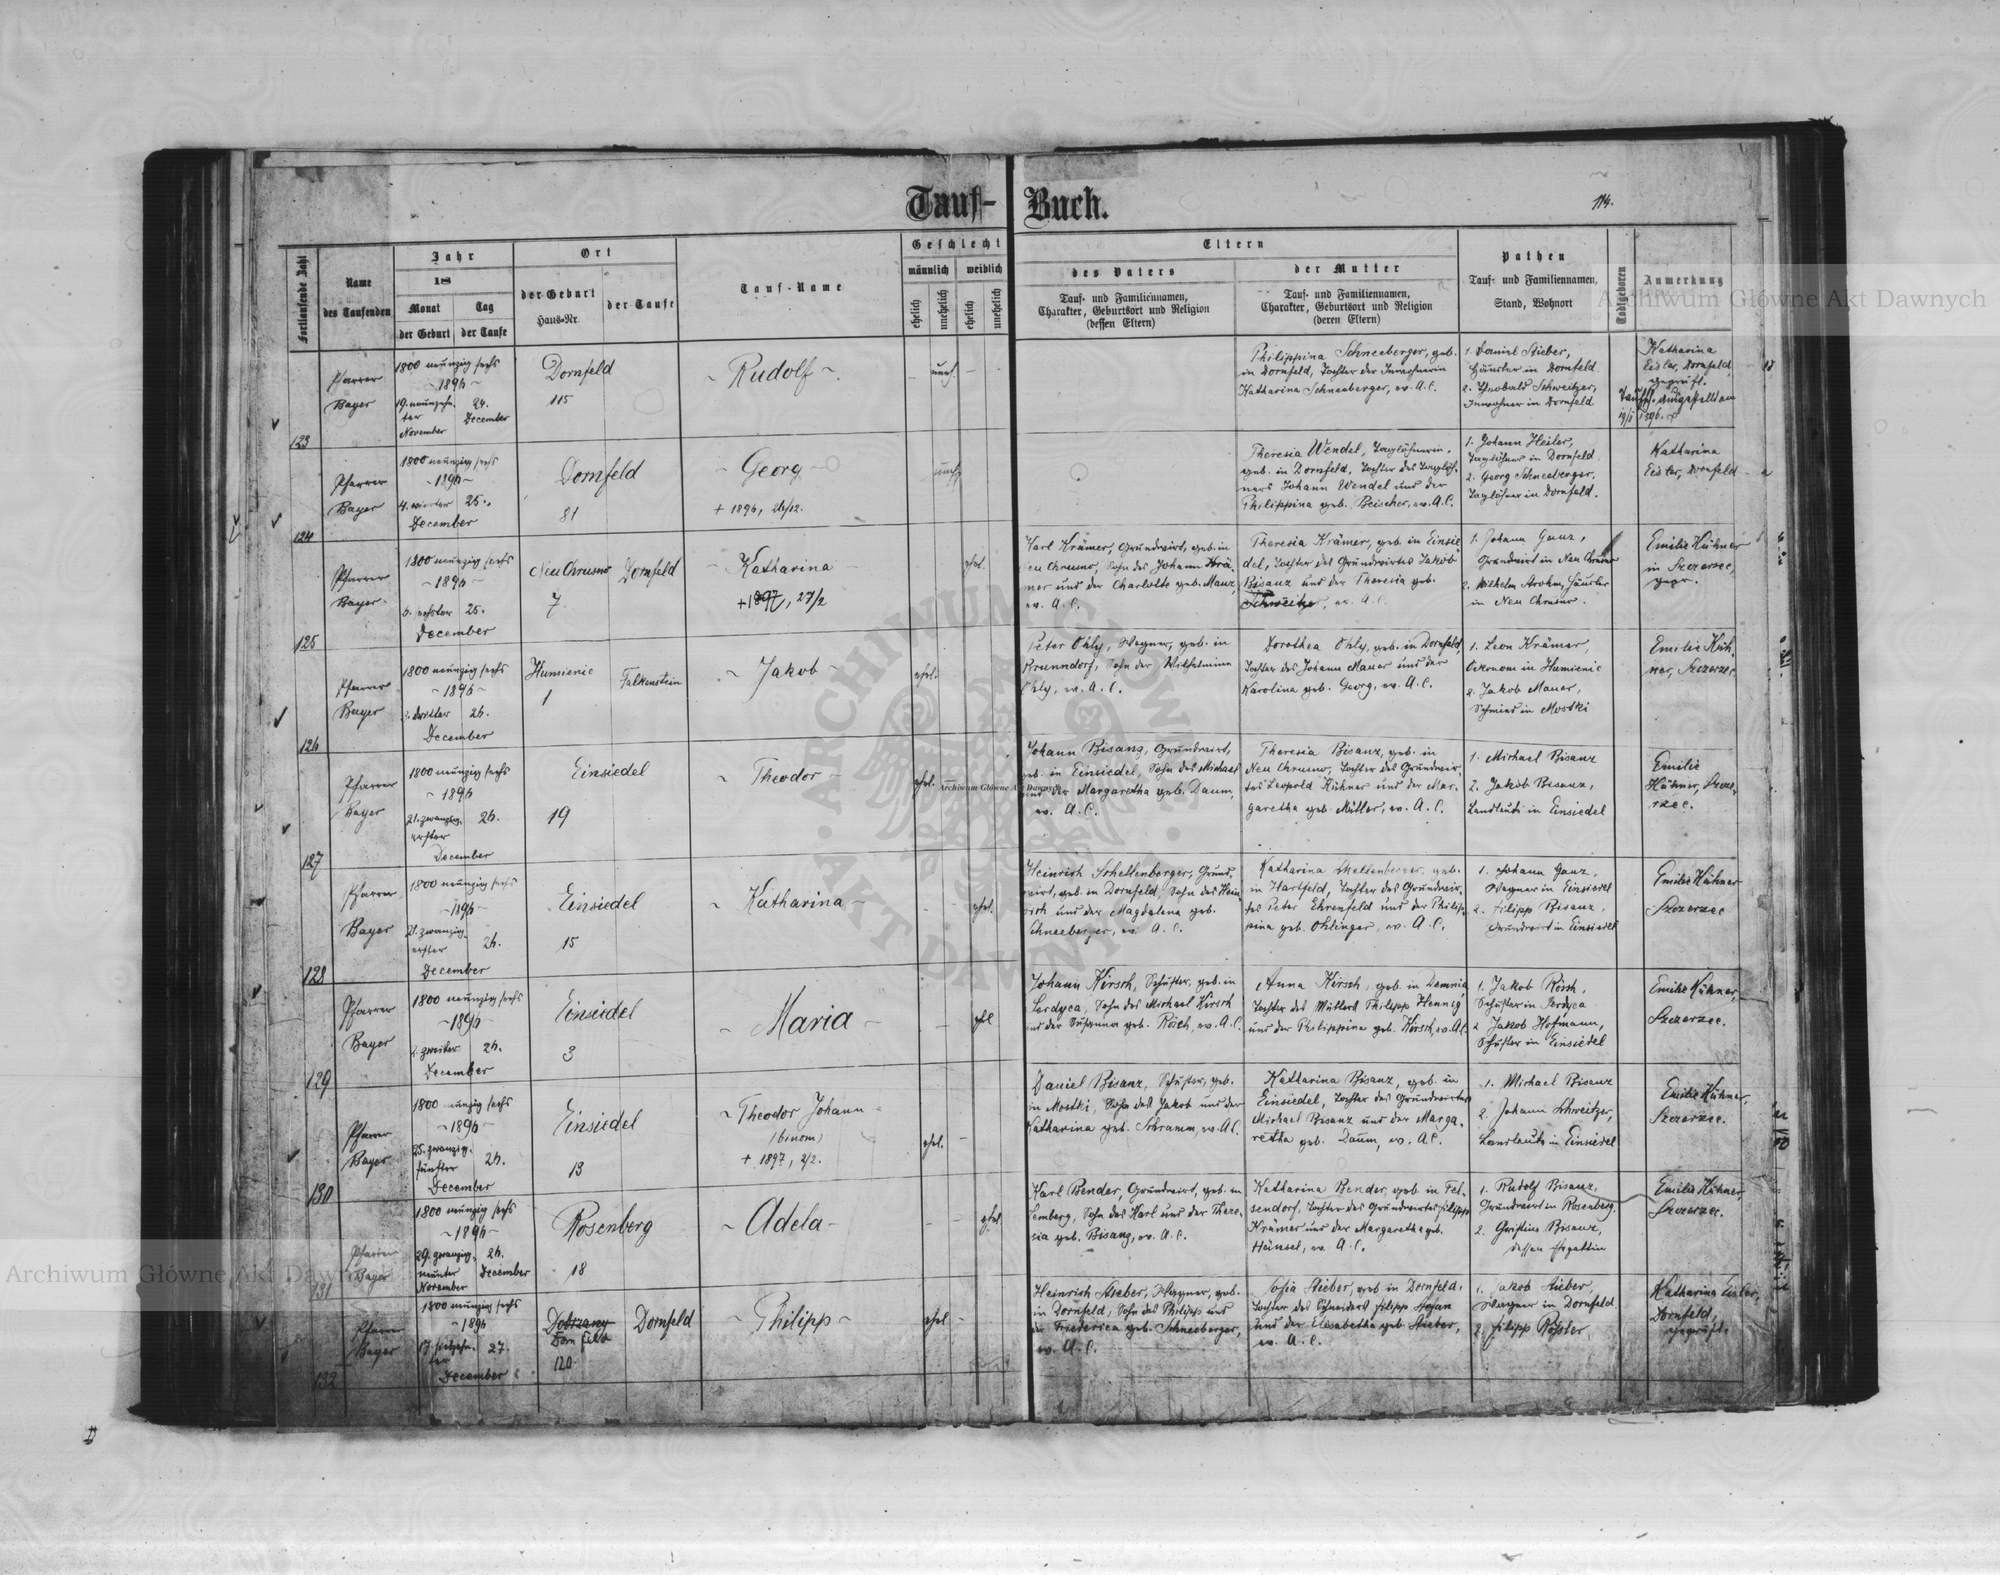 Tauf-Buch.
114.
Fortlaufende Zahl
Name
des Taufenden
Jahr
18
Monat
der Geburt
Tag
der Taufe
Ort
der Geburt
Haus-Nr.
der Taufe
Tauf-Name
Geschlecht
männlich
weiblich
ehelich
unehelich
ehelich
unehelich
Eltern
des Vaters
Tauf- und Familiennamen,
Charakter, Geburtsort und Religion
(dessen Eltern)
der Mutter
Tauf- und Familiennamen,
Charakter, Geburtsort und Religion
(deren Eltern)
Pathen
Tauf- und Familiennamen,
Stand, Wohnort
Todtgeboren
Anmerkung
123
Pfarrer
Bayer
1800 neunzig sechs
~1896~
19. neunzehn-
ter
November
24.
December
Dornfeld
115
~ Rudolf ~
unehl.
Philippina Schneeberger, geb.
in Dornfeld, Tochter der Inwohnerin
Katharina Schneeberger, ev. A.C.
1. Daniel Stieber,
Häusler in Dornfeld
2. Theobald Schweitzer,
Inwohner in Dornfeld
Katharina
Eisler, Dornfeld,
geprüft.
ausgestellt am
124
Pfarrer
Bayer
1800 neunzig sechs
~1896~
4. vierter
December
25.
Dornfeld
81
~ Georg ~
+ 1896, 26/12.
Theresia Wendel, Taglöhnerin,
geb. in Dornfeld, Tochter des Taglöh-
ners Johann Wendel und der
Philippina geb. Beischer, ev. A.C.
1. Johann Heiler,
Taglöhner in Dornfeld
2. Georg Schneeberger,
Taglöhner in Dornfeld.
Katharina
Eisler, Dornfeld
125
Pfarrer
Bayer
1800 neunzig sechs
~1896~
6. sechster
December
25.
Neu Chrusno
7
Dornfeld
~ Katharina ~
+1897, 27/2
ehel.
Karl Krämer, Grundwirt, geb. in
Neu Chrusno, Sohn des Johann Krä-
mer und der Charlotte geb. Manz,
ev. A.C.
Theresia Krämer, geb. in Einsie-
del, Tochter des Grundwirtes Jakob
Bisanz und der Theresia geb.
Schweitzer, ev. A.C.
1. Johann Ganz,
Grundwirt in Neu Chrusno
2. Wilhelm Strohm, Häusler
in Neu Chrusno.
Emilie Kühner
in Szczerzec,
gepr.
126
Pfarrer
Bayer
1800 neunzig sechs
~1896~
3. dritter
December
26.
Humieniec
1
Falkenstein
~ Jakob ~
ehel.
Peter Ohly, Wagner, geb. in
Brunndorf, Sohn der Wilhelmine
Ohly, ev. A.C.
Dorothea Ohly, geb. in Dornfeld,
Tochter des Johann Mauer und der
Karolina geb. Georg, ev. A.C.
1. Leon Krämer,
Oekonom in Humieniec
2. Jakob Mauer,
Schmied in Mostki
Emilie Küh-
ner, Szczerzec
127
Pfarrer
Bayer
1800 neunzig sechs
~1896
21. zwanzig-
erster
December
26.
Einsiedel
19
~ Theodor ~
ehel.
Johann Bisanz, Grundwirt,
geb. in Einsiedel, Sohn des Michael
und der Margaretha geb. Daum,
ev. A.C.
Theresia Bisanz, geb. in
Neu Chrusno, Tochter des Grundwir-
tes Leopold Kühner und der Mar-
garetha geb. Müller, ev. A.C.
1. Michael Bisanz
2. Jakob Bisanz,
Landleute in Einsiedel
Emilie
Kühner, Szcze-
rzec.
128
Pfarrer
Bayer
1800 neunzig sechs
~1896~
21. zwanzig-
erster
December
26.
Einsiedel
15
~ Katharina ~
ehel.
Heinrich Schellenberger, Grund-
wirt, geb. in Dornfeld, Sohn des Hein-
rich und der Magdalena geb.
Schneeberger, ev. A.C.
Katharina Schellenberger, geb.
in Hartfeld, Tochter des Grundwir-
tes Peter Ehrenfeld und der Philip-
pina geb. Ohlinger, ev. A.C.
1. Johann Ganz,
Wagner in Einsiedel
2. Filipp Bisanz,
Grundwirt in Einsiedel
Emilie Kühner
Szczerzec
129
Pfarrer
Bayer
1800 neunzig sechs
~1896~
2. zweiter
December
26.
Einsiedel
3
~ Maria ~
ehel
Johann Kirsch, Schuster, geb. in
Serdyca, Sohn des Michael Kirsch
und der Susanna geb. Rösch, ev. A.C.
Anna Kirsch, geb. in Demnia,
Tochter des Müllers Philipp Hennig
und der Philippina geb. Kirsch, ev. A.C.
1. Jakob Rösch,
Schuster in Serdyca
2. Jakob Hofmann,
Schuster in Einsiedel
Emilie Kühner,
Szczerzec.
130
Pfarrer
Bayer
1800 neunzig sechs
~1896~
25. zwanzig-
fünfter
December
26.
Einsiedel
13
~ Theodor Johann ~
(binom)
+ 1897, 2/2.
ehel.
Daniel Bisanz, Schuster, geb.
in Mostki, Sohn des Jakob und der
Katharina geb. Schramm, ev. A.C.
Katharina Bisanz, geb. in
Einsiedel, Tochter des Grundwirtes
Michael Bisanz und der Marga-
retha geb. Daum, ev. A.C.
1. Michael Bisanz
2. Johann Schweitzer,
Landleute in Einsiedel
Emilie Kühner,
Szczerzec.
131
Pfarrer
Bayer
1800 neunzig sechs
~1896~
29. zwanzig-
neunter
November
26.
December
Rosenberg
18
~ Adela ~
ehel.
Karl Bender, Grundwirt, geb. in
Lemberg, Sohn des Karl und der There-
sia geb. Bisanz, ev. A.C.
Katharina Bender, geb. in Fel-
sendorf, Tochter des Grundwirtes Filipp
Krämer und der Margaretha geb.
Hänsel, ev. A.C.
1. Rudolf Bisanz,
Grundwirt in Rosenberg.
2. Christine Bisanz,
dessen Ehegattin
Emilie Kühner,
Szczerzec.
132
Pfarrer
Bayer
1800 neunzig sechs
~1896
17. siebzehn-
ter
December
27.
Dobrzany
Dornfeld
120.
Dornfeld
~ Philipp ~
ehel
Heinrich Stieber, Wagner, geb.
in Dornfeld, Sohn des Philipp und
der Friederica geb. Schneeberger,
ev. A.C.
Sofia Stieber, geb. in Dornfeld,
Tochter des Schneiders Filipp Stefan
und der Elisabetha geb. Stieber,
ev. A.C.
1. Jakob Stieber,
Wagner in Dornfeld
2. Filipp Köhler
Katharina Eisler,
Dornfeld,
geprüft.
Archiwum Główne Akt Dawnych
Archiwum Główne Akt Dawnych
Archiwum Główne Akt Dawnych
ARCHIWUM GŁÓWNE · AKT DAWNYCH ·